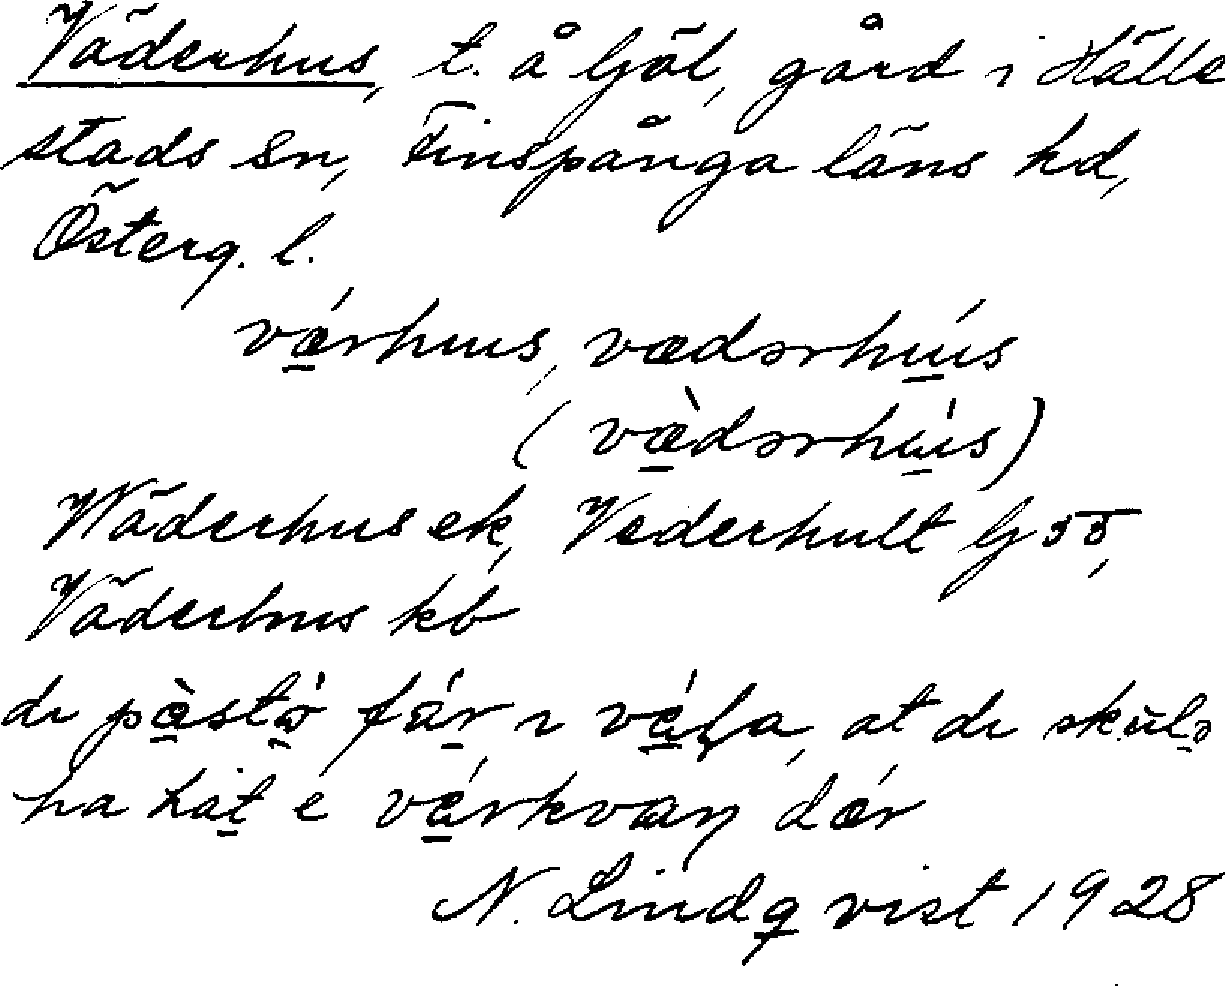 Väderhus, t. å Gjöl, gård i Hälle
stads sn, Finspånga läns hd,
Österg. l.
vǽrhus, vædərhús
(væ̀dərhús)
Wäderhus ek, Vederhult Gj 55,
Väderhus kb
de pæ̀stǝ́ fǻr ı vǽɭa, at de skulə
ha hat e vǽrkvaɳ dǽr
N. Lindqvist 1928